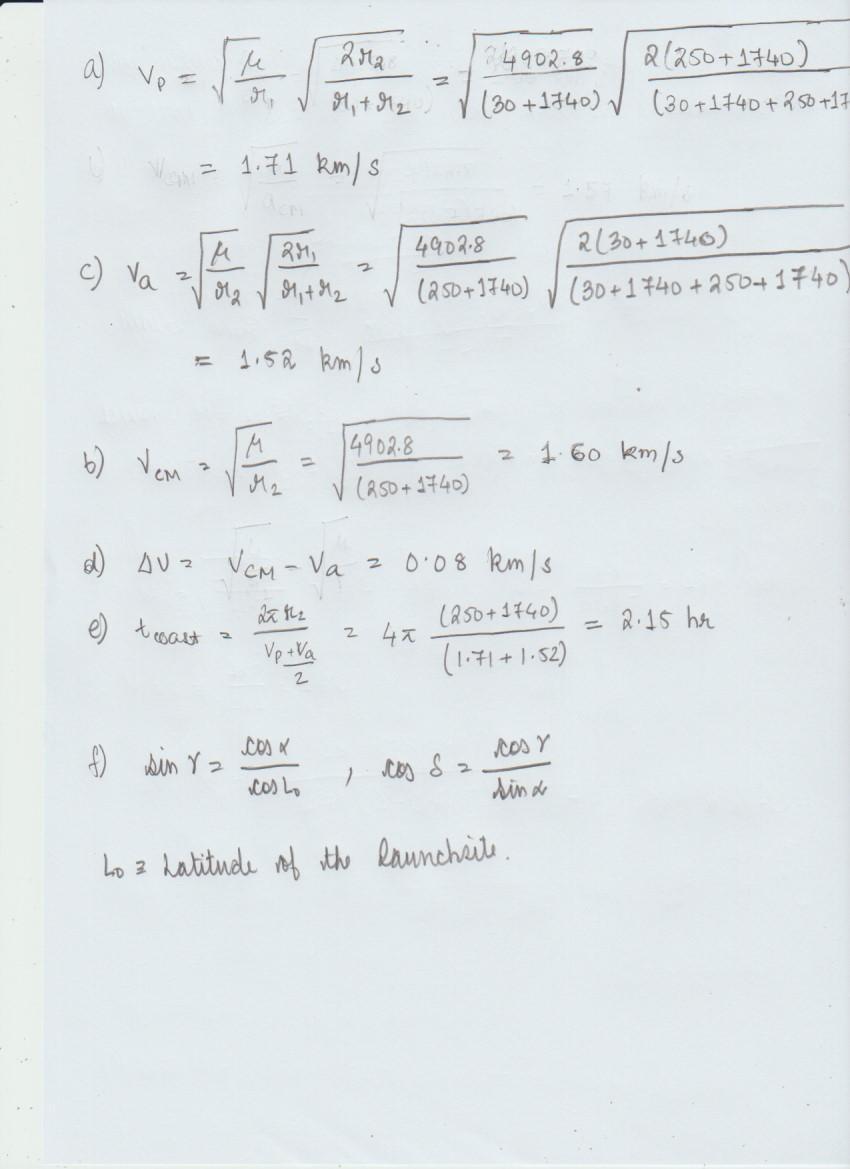 a) Vp = √(μ/r₁) √(2r₂/(r₁+r₂)) = √(4902.8/(30+1740)) √(2(250+1740)/(30+1740+250+17
= 1.71 km/s
c) Va = √(μ/r₂) √(2r₁/(r₁+r₂)) = √(4902.8/(250+1740)) √(2(30+1740)/(30+1740+250+1740))
= 1.52 km/s
b) VCM = √(μ/r₂) = √(4902.8/(250+1740)) = 1.60 km/s
d) ΔV = VCM - Va = 0.08 km/s
e) tcoast = 2πr₂/((Vp+Va)/2) = 4π (250+1740)/(1.71+1.52) = 2.15 hr
f) sin γ = cos α/cos L₀ , cos δ = cos γ/sin α
L₀ = Latitude of the launchsite.